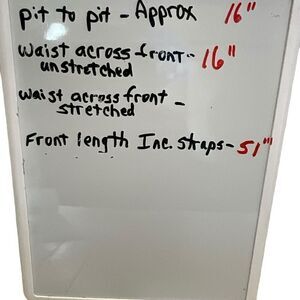 pit to pit - Approx 16"
waist across front - 16"
unstretched
waist across front -
stretched
Front length Inc. straps - 51"